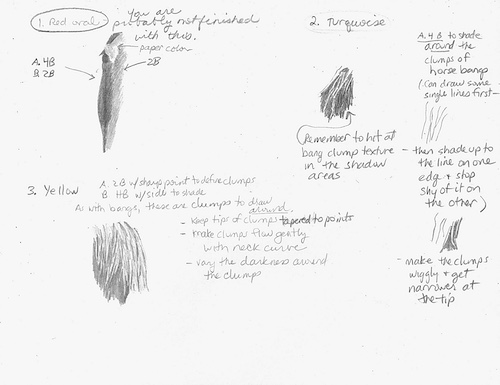 1. Red oval:
you are
probably not finished
with this.
paper color
A. 4B
B. 2B
2B
2. Turquoise
Remember to hit at
bang clump texture
in the shadow
areas
A. 4B to shade
around the
clumps of
horse bangs
(Can draw some
single lines first—
— then shade up to
the line on one
edg + stop
shy of it on
the other)
- make the clumps
wiggly + get
narrower at
the tip
3. Yellow
A. 2B w/ sharp point to define clumps
B HB w/ side to shade
As with bangs, these are clumps to draw
around.
- Keep tips of clumps tapered to points
- make clumps flow gently
with neck curve
- vary the darkness around
the clumps